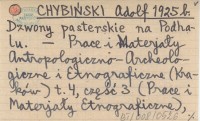 CHYBIŃSKI Adolf 1925 b.
Dzwony pasterskie na Podha-
lu. — Prace i Materjały
Antropologiczno-Archeolo-
giczne i Etnograficzne (Kra-
ków) t. 4, część 3 (Prace i
Materjały Etnograficzne),